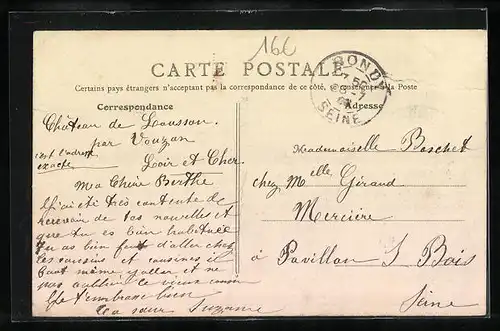 166
CARTE POSTALE
Certains pays étrangers n'acceptant pas la correspondance de ce côté, se renseigner à la Poste
Correspondance
Adresse
BONDY
7 50
SEINE
Château de
par Vouzon
Loir et Cher
est l'adresse
exacte
Ma Chère Berthe
J'ai été très contente de
recevoir de tes nouvelles et
que tu es bien habituée
tu as bien fait d'aller chez
les cousins et cousines il
faut même y aller et ne
pas oublier le vieux cousin
Je t'embrasse bien
ta sœur Suzanne
Mademoiselle Boschet
chez Melle Géraud
Mercière
à Pavillon S Bois
Seine